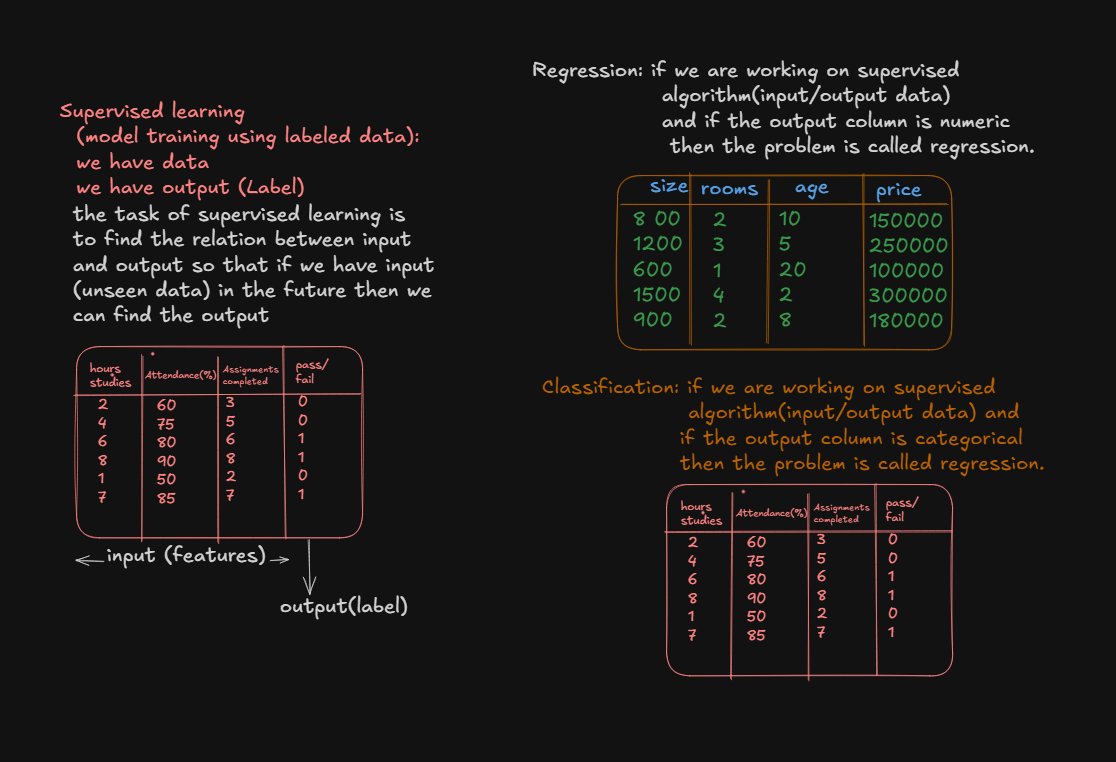 Supervised learning
(model training using labeled data):
we have data
we have output (Label)
the task of supervised learning is
to find the relation between input
and output so that if we have input
(unseen data) in the future then we
can find the output
hours studies Attendance(%) Assignments completed pass/ fail
2 60 3 0
4 75 5 0
6 80 6 1
8 90 8 1
1 50 2 0
7 85 7 1
input (features)
output(label)
Regression: if we are working on supervised
algorithm(input/output data)
and if the output column is numeric
then the problem is called regression.
size rooms age price
8 00 2 10 150000
1200 3 5 250000
600 1 20 100000
1500 4 2 300000
900 2 8 180000
Classification: if we are working on supervised
algorithm(input/output data) and
if the output column is categorical
then the problem is called regression.
hours studies Attendance(%) Assignments completed pass/ fail
2 60 3 0
4 75 5 0
6 80 6 1
8 90 8 1
1 50 2 0
7 85 7 1